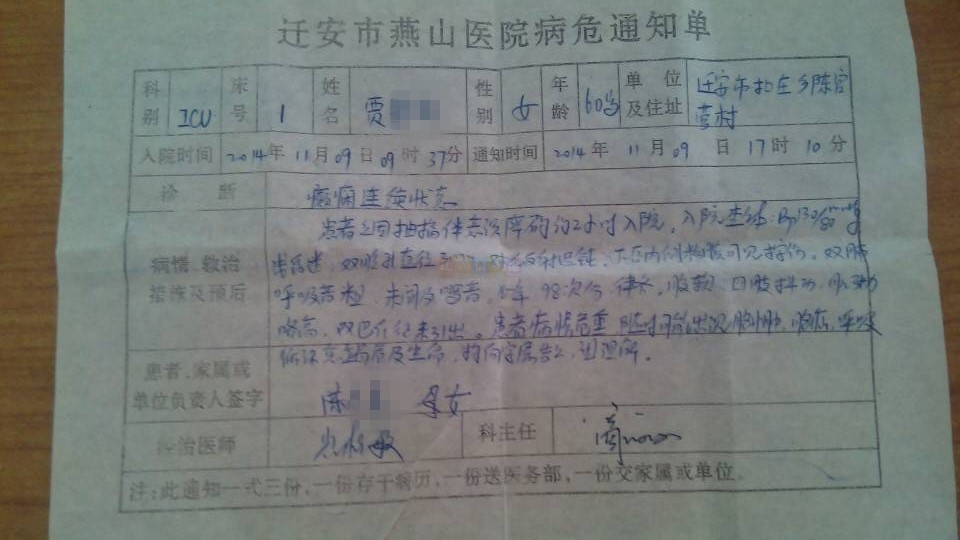 迁安市燕山医院病危通知单
科别 ICU 床号 1 姓名 贾 性别 女 年龄 60岁 单位及住址 迁安市 乡陈官营村
入院时间 2014年 11月09日09时37分 通知时间 2014年 11月09日17时10分
诊断 癫痫连续状态
患者因抽搐伴意识障碍约2小时入院。入院查体:Bp130/80mmHg
病情、救治措施及预后
浅昏迷,双瞳孔直径 对光反射迟钝,下唇内侧粘膜可见 伤。双肺
呼吸音粗,未闻及啰音。心率98次/分 律齐。腹软,四肢抖动,肌张力
略高,双巴氏征未引出。患者病情危重,随时可能出现 脑疝,呼吸
危及生命,
患者、家属或单位负责人签字
陈 母女
经治医师 科主任
注:此通知一式三份,一份存于病历,一份送医务部,一份交家属或单位。